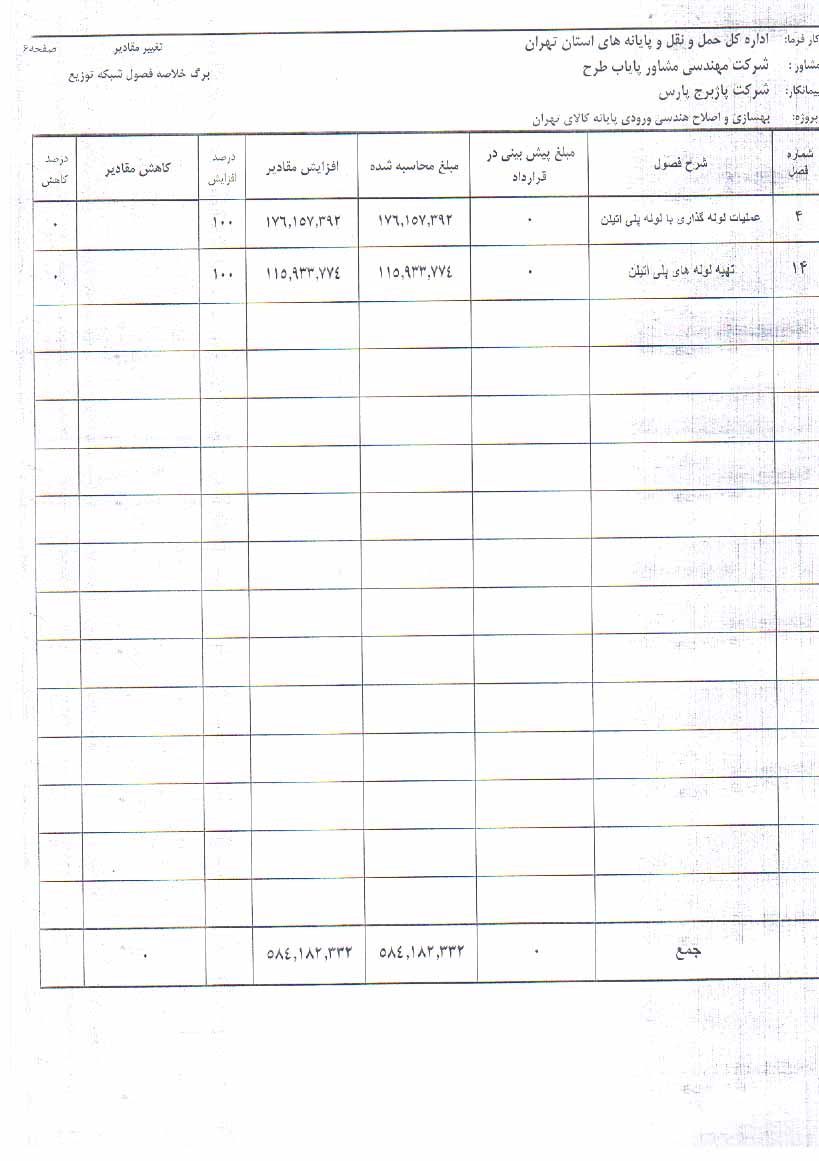 کار فرما: اداره کل حمل و نقل و پایانه های استان تهران
تغییر مقادیر
صفحه۶
مشاور : شرکت مهندسی مشاور پایاب طرح
برگ خلاصه فصول شبکه توزیع
پیمانکار: شرکت پاژبرج پارس
پروژه: بهسازی و اصلاح هندسی ورودی پایانه کالای تهران
شماره فصل شرح فصول مبلغ پیش بینی در قرارداد مبلغ محاسبه شده افزایش مقادیر درصد افزایش کاهش مقادیر درصد کاهش
۴ عملیات لوله گذاری با لوله پلی اتیلن ۰ ۱۷٦,۱٥۷,۳۹۲ ۱۷٦,۱٥۷,۳۹۲ ۱۰۰ ۰
۱۴ تهیه لوله های پلی اتیلن ۰ ۱۱٥,۹۳۳,۷۷٤ ۱۱٥,۹۳۳,۷۷٤ ۱۰۰ ۰
جمع ۰ ٥۸٤,۱۸۲,۳۳۲ ٥۸٤,۱۸۲,۳۳۲ ۰